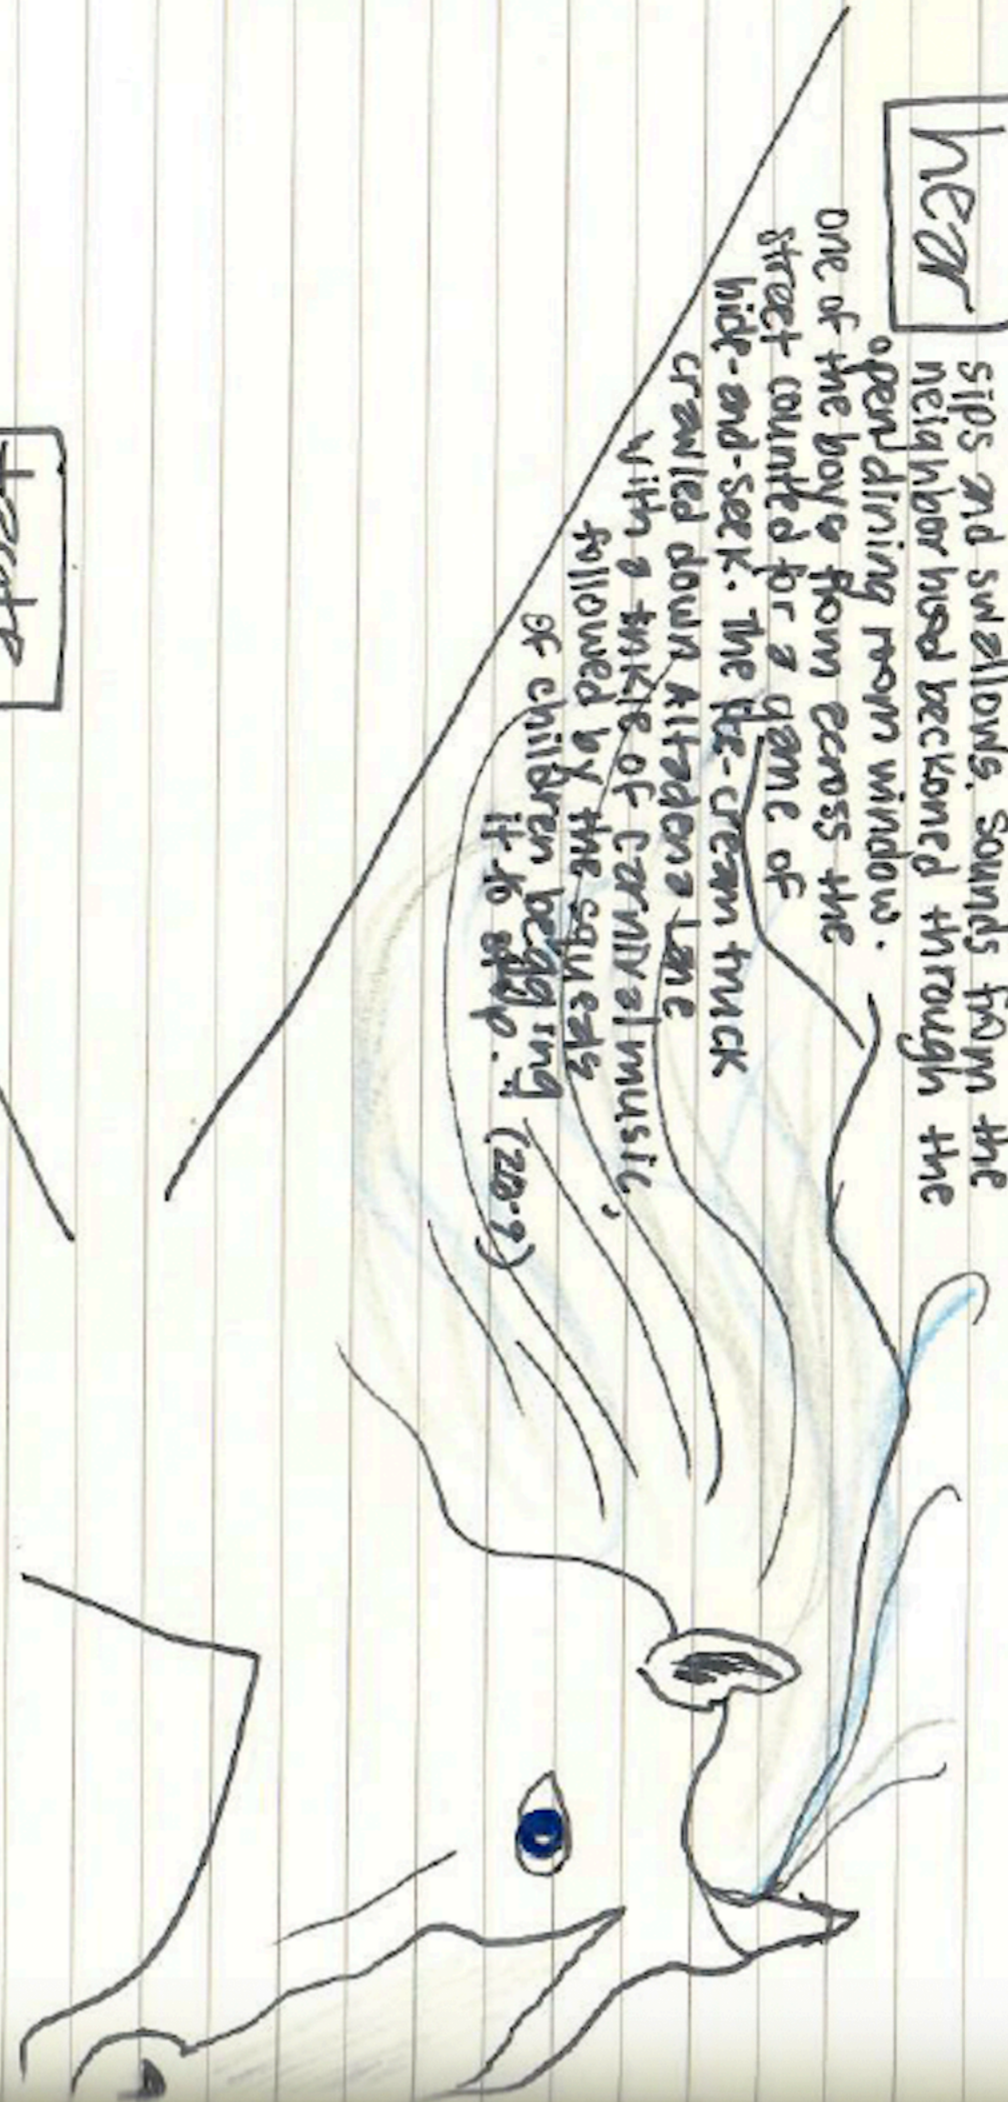 hear
sips and swallows. Sounds from the
neighborhood beckoned through the
open dining room window.
one of the boys from across the
street counted for a game of
hide-and-seek. The ice-cream truck
crawled down Altadena Lane
with a tinkle of carnival music,
followed by the squeals
of children begging
it to stop." (28-9)